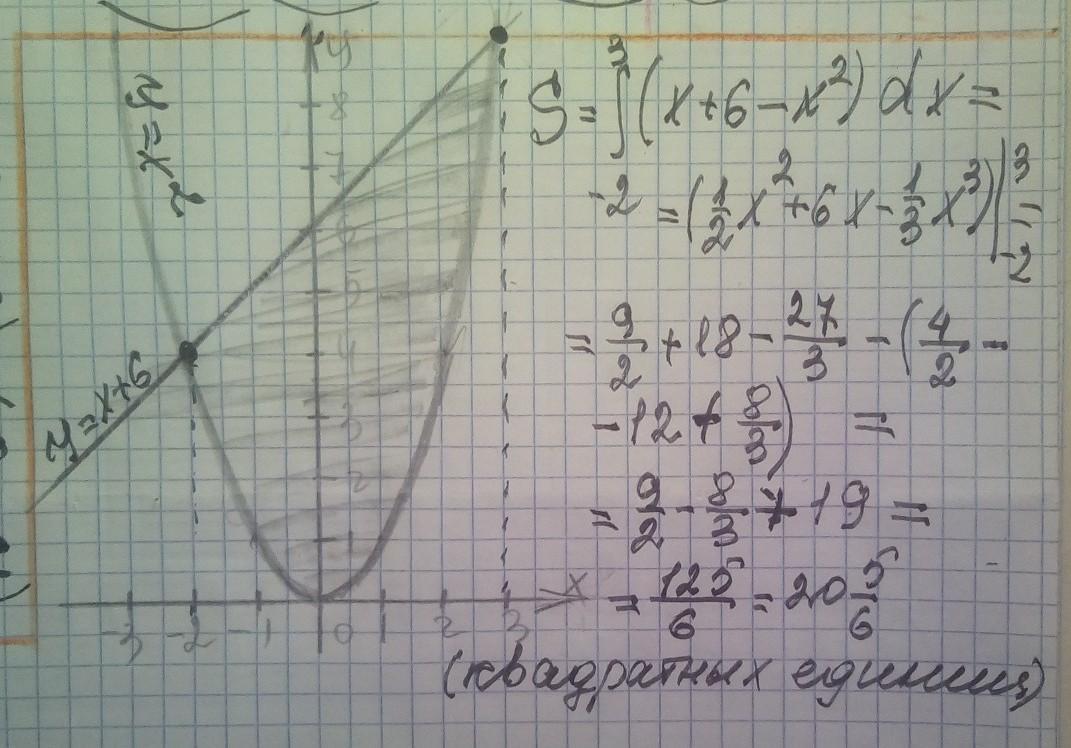 y = x²
y = x+6
y
8
7
6
5
4
3
2
1
-3 -2 -1 0 1 2 3 x
S = ∫₋₂³ (x+6-x²) dx =
= (½x² + 6x - ⅓x³) |₋₂³ =
= 9/2 + 18 - 27/3 - (4/2 -
- 12 + 8/3) =
= 9/2 - 8/3 + 19 =
= 125/6 = 20 5/6
(квадратных единиц)